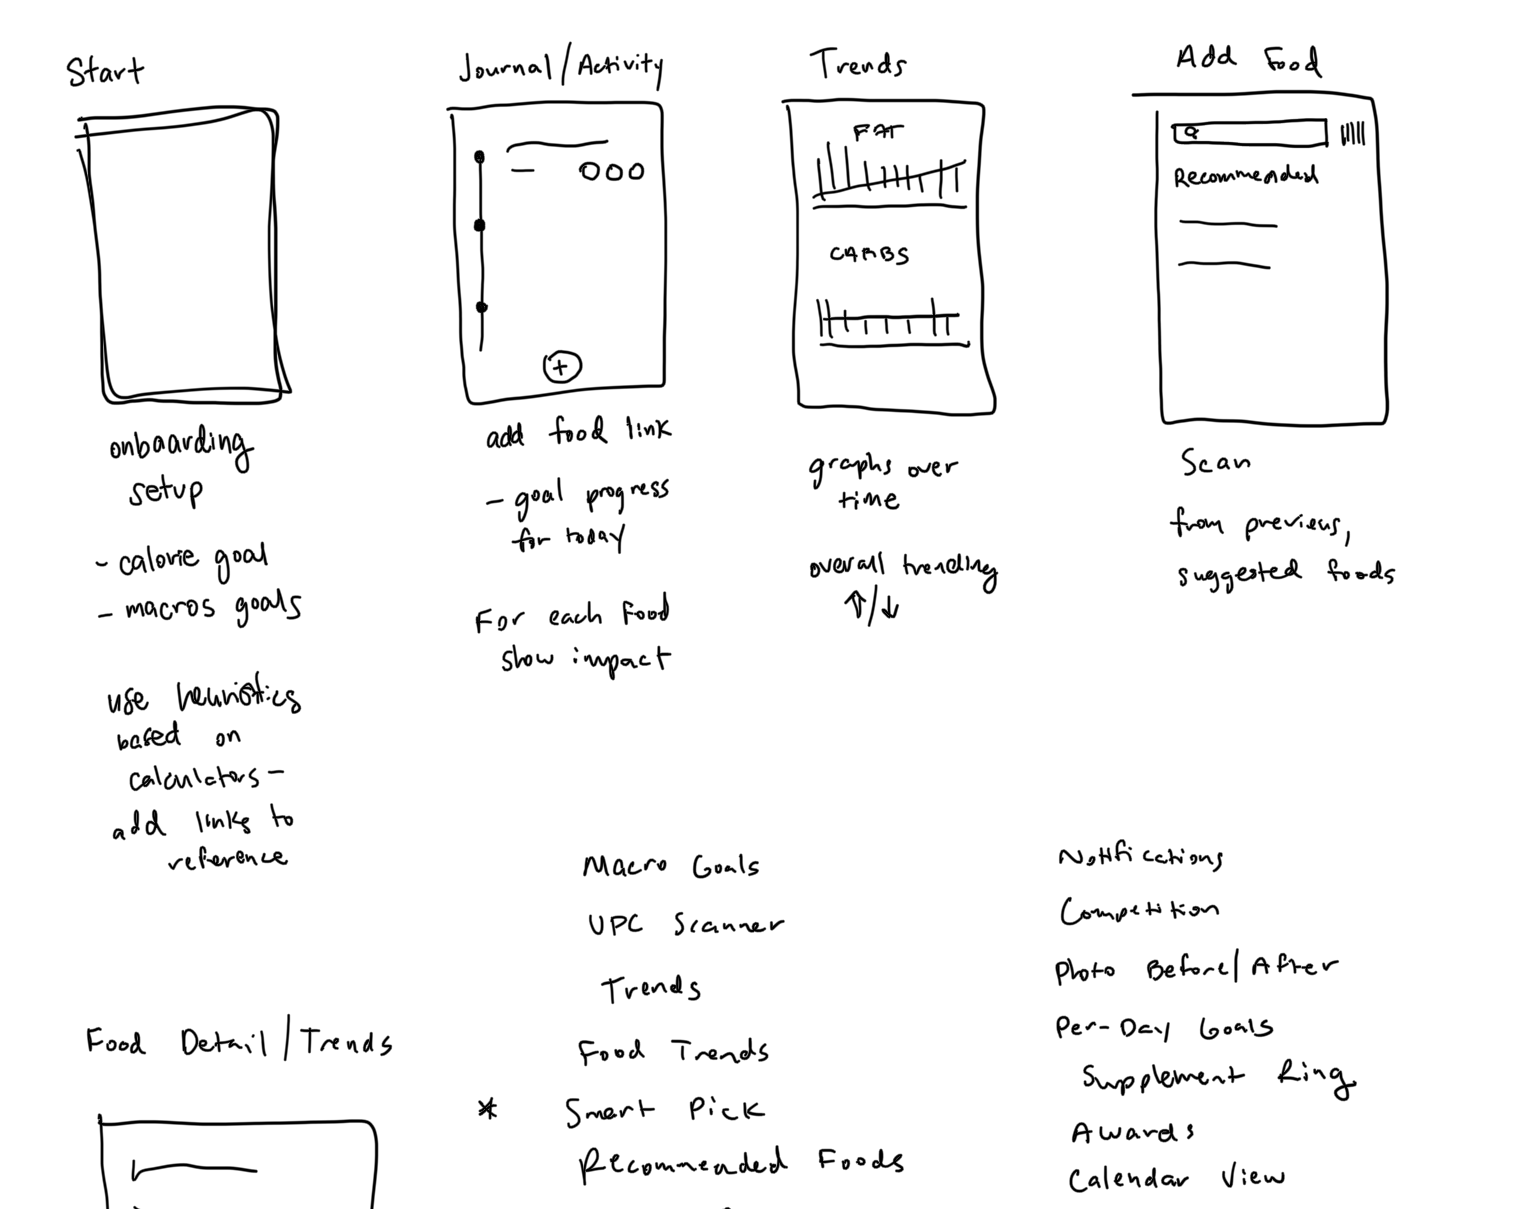 Start
onboarding
setup
- calorie goal
- macros goals
use heuristics
based on
calculators -
add links to
reference
Journal/Activity
+
add food link
- goal progress
for today
For each Food
show impact
Trends
FAT
CARBS
graphs over
time
overall trending
↑/↓
Add Food
Recommended
Scan
from previous,
suggested foods
Food Detail/Trends
Macro Goals
UPC Scanner
Trends
Food Trends
* Smart Pick
Recommended Foods
Notifications
Competition
Photo Before/After
Per-Day Goals
Supplement Ring
Awards
Calendar View